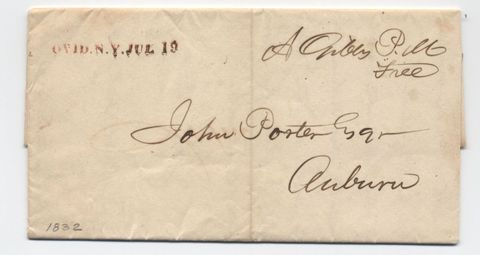 OVID. N.Y. JUL 19
A Gibbs P.M
Free
John Porter Esqr
Auburn
1832